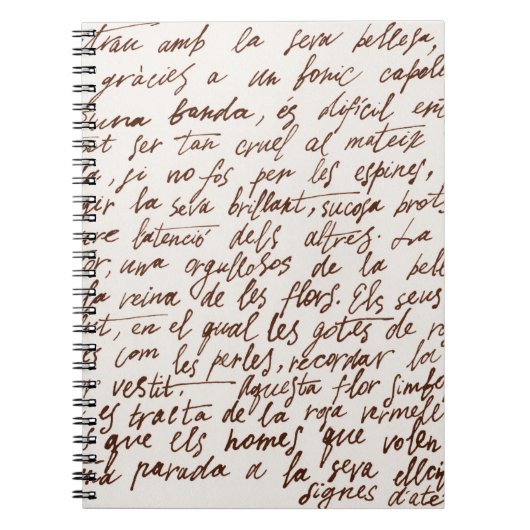 trau amb la seva bellesa,
gràcies a un fonic capell
una banda, és difícil en
ser tan cruel al mateix
la, si no fos per les espines,
gir la seva brillant, sucosa prot
latenció dels altres. La
or, una orgullosos de la bell
la reina de les flors. Els seus
t, en el qual les gotes de r
s com les perles, recordar la
r vestit. Aquesta flor simbo
es tracta de la rosa vermell
s que els homes que volen
na parada a la seva
signes d'ate